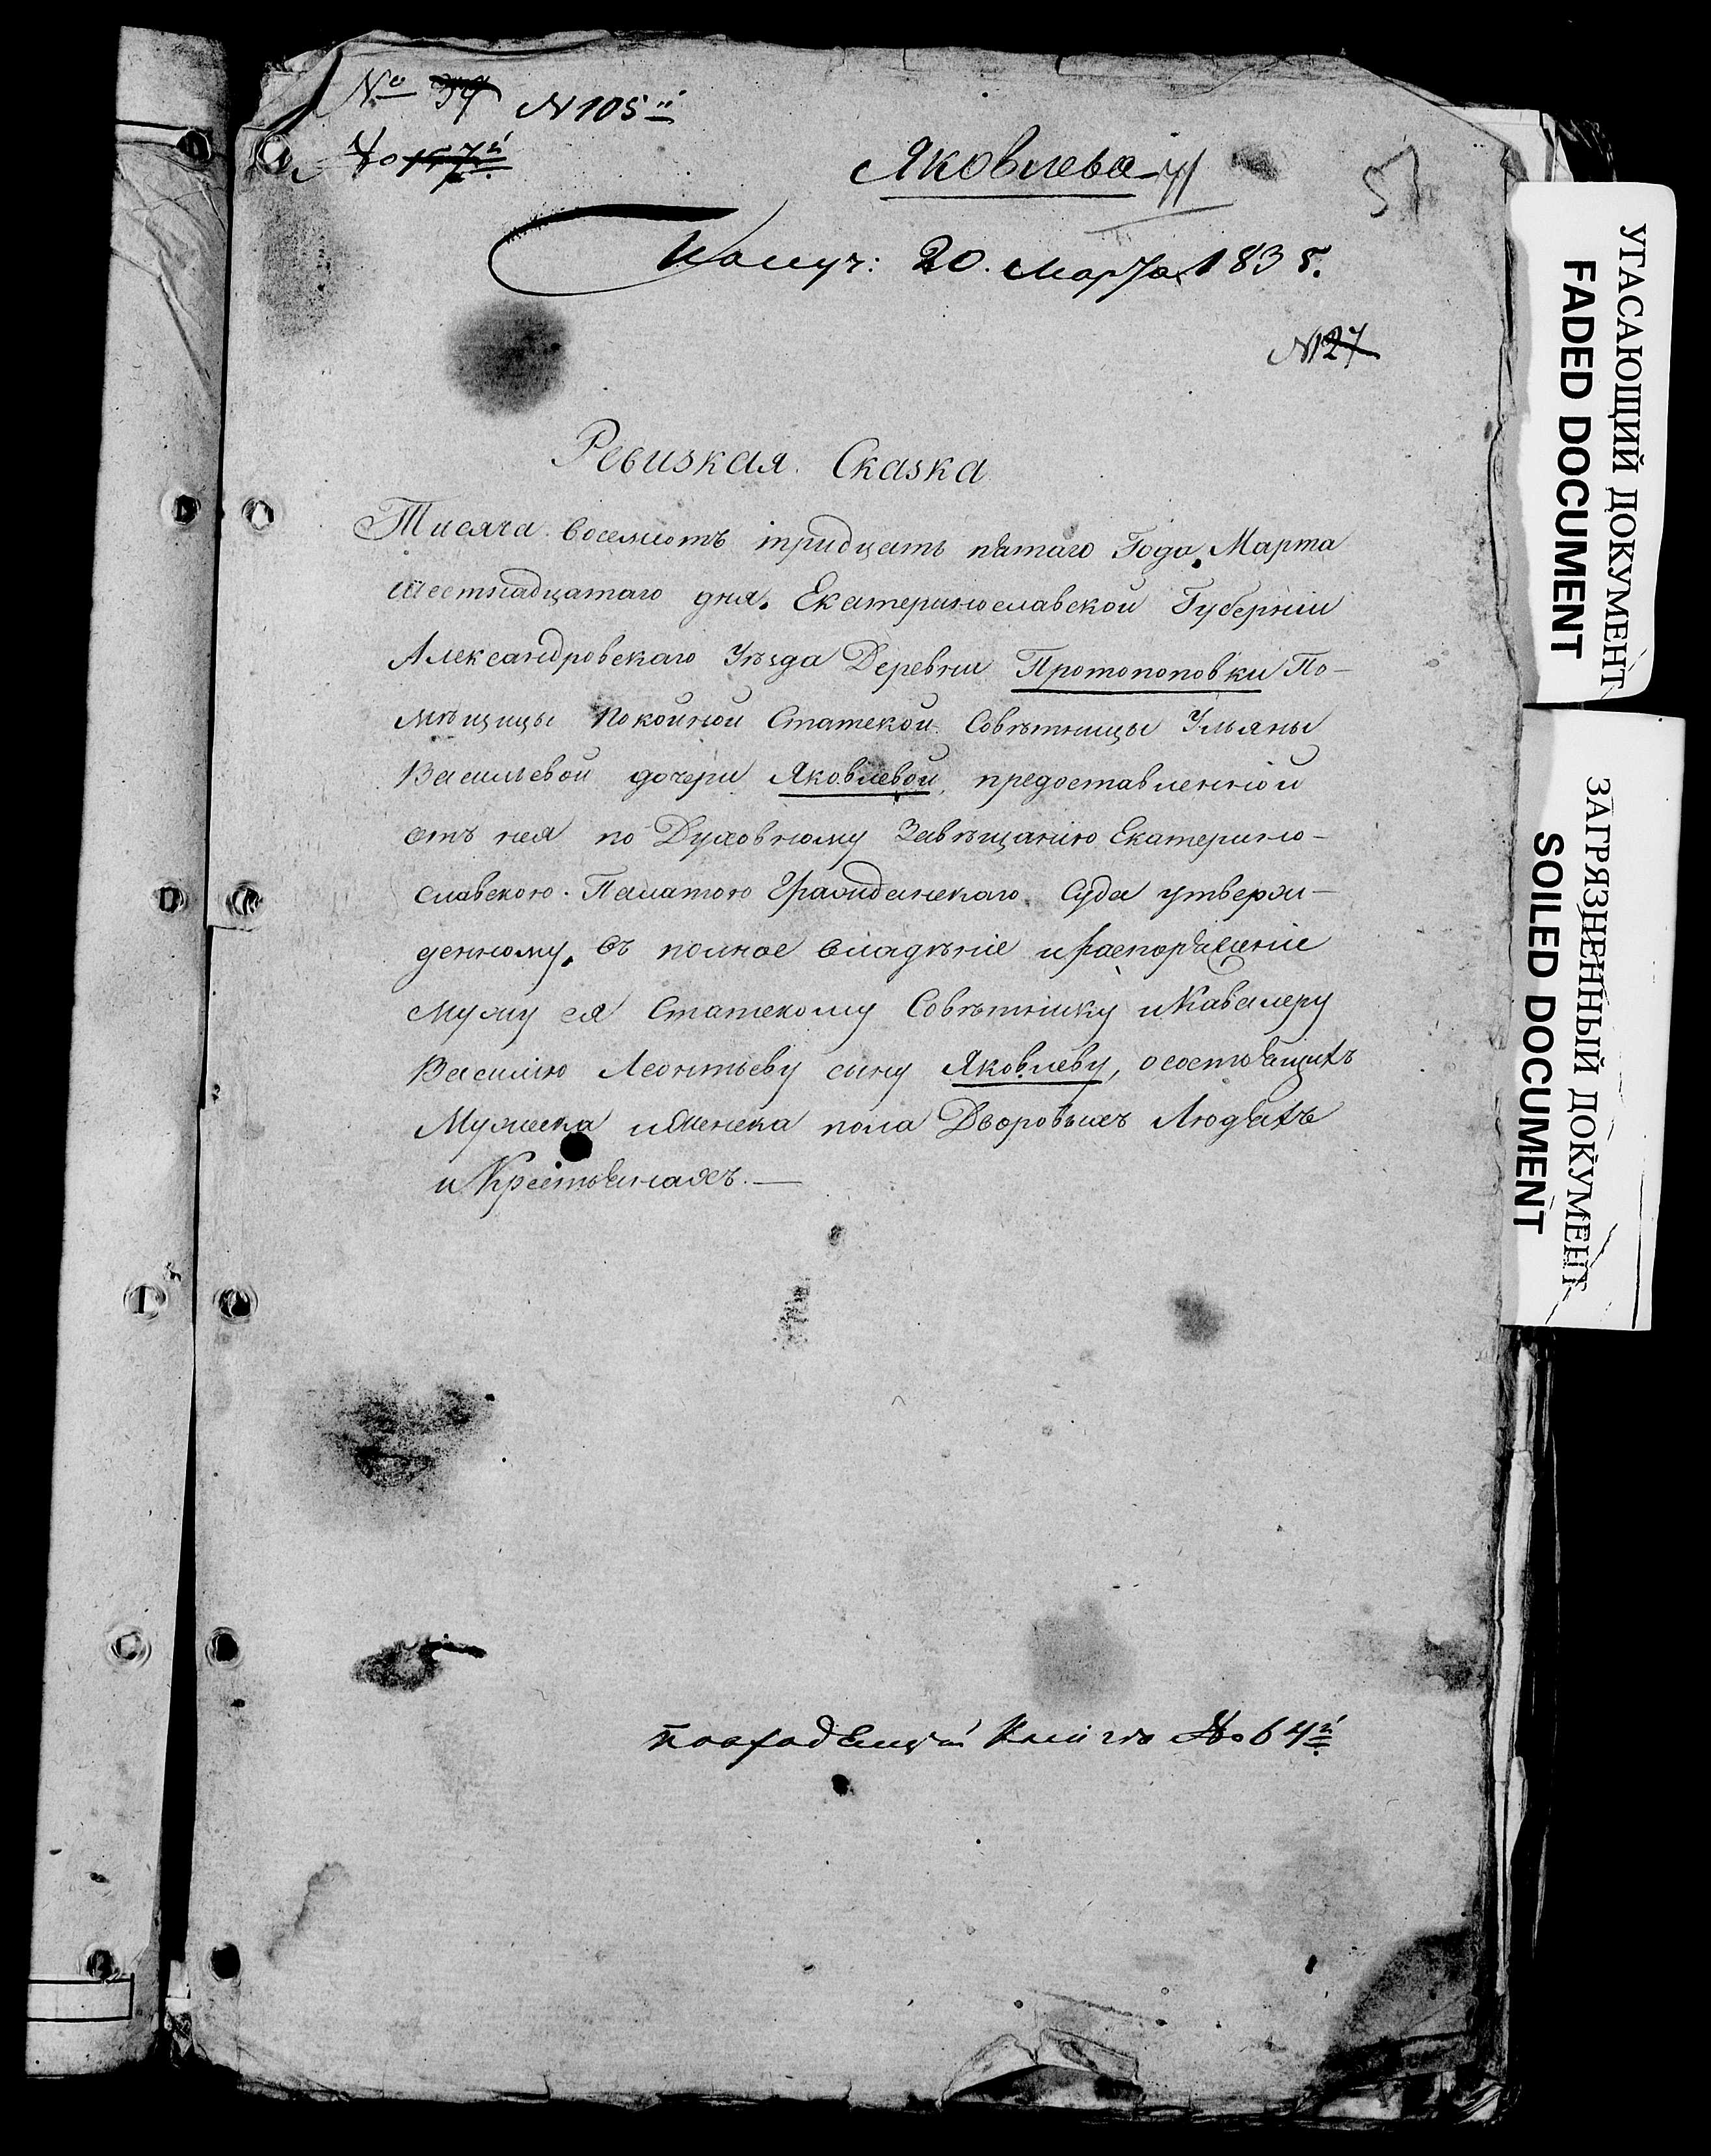 № 37 N 105й
Яковлева
57
Получ: 20. Марта 1835.
N 27
Ревизкая Сказка
Тисяча восемсотъ тридцать пятаго Года, Марта
шестнадцатаго дня. Екатеринославской Губерніи
Александровскаго Уѣзда Деревни Протопоповки По-
мѣщицы Покойной Статской Совѣтницы Ульяны
Васильевой дочери Яковлевой, предоставленной
отъ нея по Духовному Завѣщанию Екатерино-
славскою Палатою Гражданскаго Суда утверж-
денному, въ полное владѣніе и распоряженіе
мужу ея Статскому Совѣтнику и Кавалеру
Василию Леонтьеву сыну Яковлеву, о состоящихъ
Мужеска и Женска пола Дворовыхъ Людяхъ
и Крестьянахъ.—
№ 64й
УГАСАЮЩИЙ ДОКУМЕНТ
FADED DOCUMENT
ЗАГРЯЗНЕННЫЙ ДОКУМЕНТ
SOILED DOCUMENT